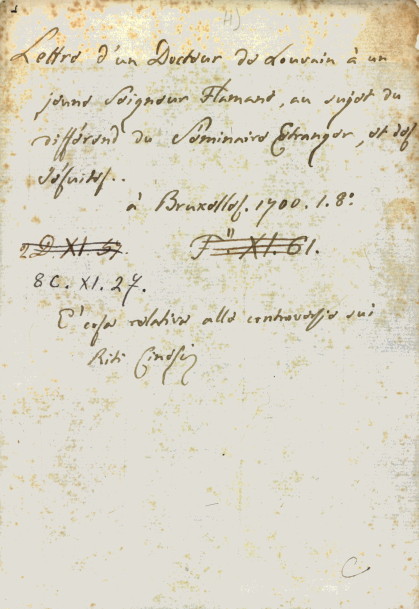 H)
Lettre d'un Docteur de Louvain à un
jeune Seigneur Flamand, au sujet du
différend du Séminaire Etranger, et des
Jésuites..
à Bruxelles. 1700. 1. 8º
2 D. XI. 57
F" XI. 61.
8 C. XI. 27.
E' cosa relativa alle controversie sui
Riti Cinesi
C